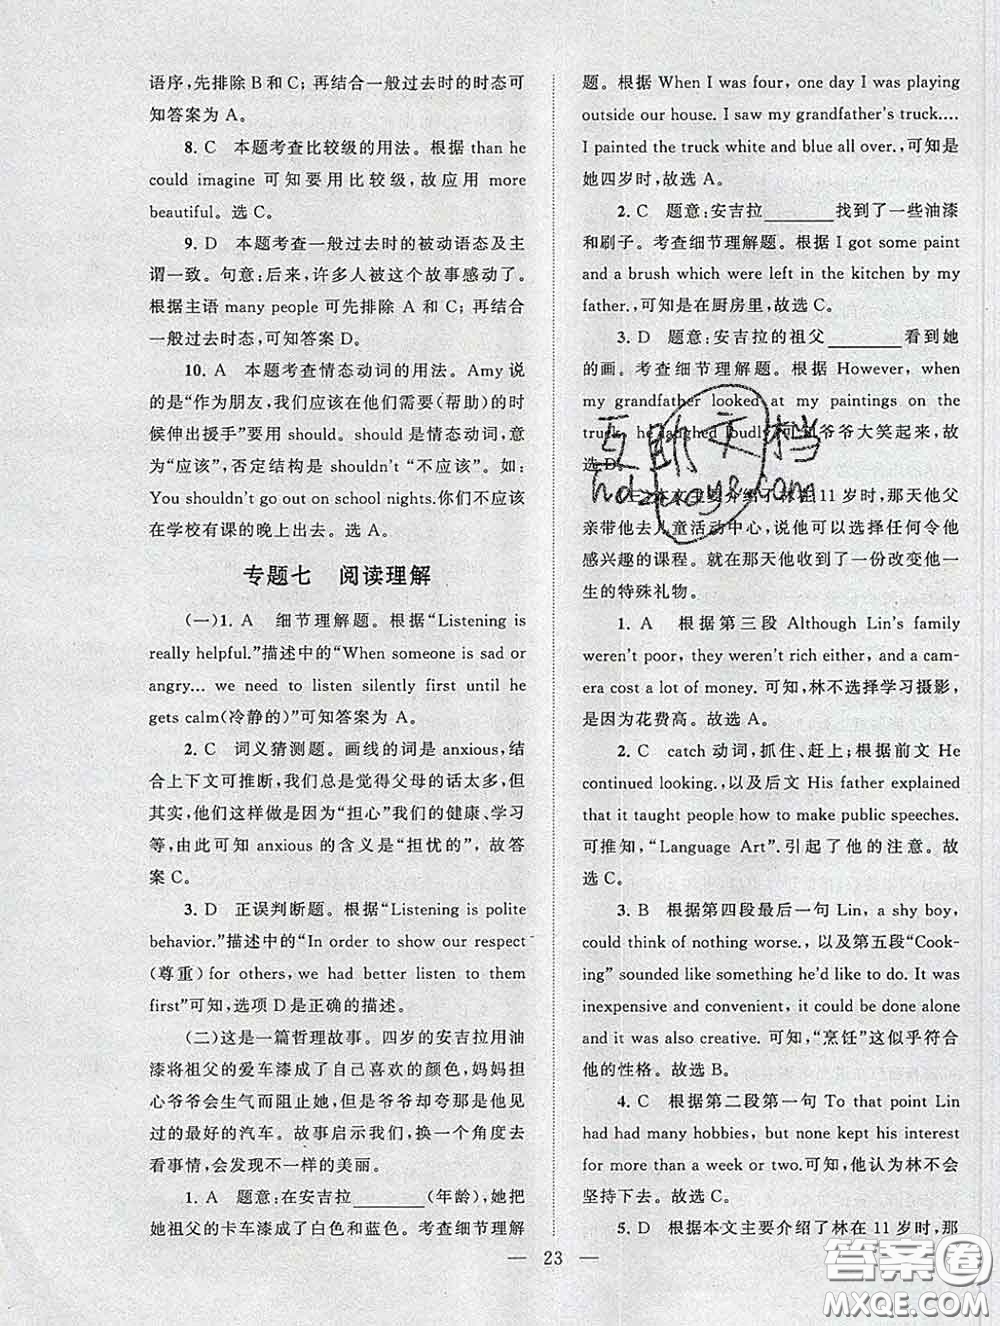 语序,先排除 B 和 C;再结合一般过去时的时态可
知答案为 A。
8. C 本题考查比较级的用法。根据 than he
could imagine 可知要用比较级,故应用 more
beautiful。选 C。
9. D 本题考查一般过去时的被动语态及主
谓一致。句意:后来,许多人被这个故事感动了。
根据主语 many people 可先排除 A 和 C;再结合
一般过去时态,可知答案 D。
10. A 本题考查情态动词的用法。Amy 说
的是“作为朋友,我们应该在他们需要(帮助)的时
候伸出援手”要用 should。should 是情态动词,意
为“应该”,否定结构是 shouldn't “不应该”。如:
You shouldn't go out on school nights.你们不应该
在学校有课的晚上出去。选 A。
专题七 阅读理解
(一)1. A 细节理解题。根据“Listening is
really helpful.”描述中的“When someone is sad or
angry... we need to listen silently first until he
gets calm(冷静的)”可知答案为 A。
2. C 词义猜测题。画线的词是 anxious,结
合上下文可推断,我们总是觉得父母的话太多,但
其实,他们这样做是因为“担心”我们的健康、学习
等,由此可知 anxious 的含义是“担忧的”,故答
案 C。
3. D 正误判断题。根据“Listening is polite
behavior.”描述中的“In order to show our respect
(尊重) for others, we had better listen to them
first”可知,选项 D 是正确的描述。
(二)这是一篇哲理故事。四岁的安吉拉用油
漆将祖父的爱车漆成了自己喜欢的颜色,妈妈担
心爷爷会生气而阻止她,但是爷爷却夸那是他见
过的最好的汽车。故事启示我们,换一个角度去
看事情,会发现不一样的美丽。
1. A 题意:在安吉拉________(年龄),她把
她祖父的卡车漆成了白色和蓝色。考查细节理解
题。根据 When I was four, one day I was playing
outside our house. I saw my grandfather's truck....
I painted the truck white and blue all over.,可知是
她四岁时,故选 A。
2. C 题意:安吉拉________找到了一些油漆
和刷子。考查细节理解题。根据 I got some paint
and a brush which were left in the kitchen by my
father.,可知是在厨房里,故选 C。
3. D 题意:安吉拉的祖父________看到她
的画。考查细节理解题。根据 However, when
my grandfather looked at my paintings on the
truck, he laughed loudly.可知爷爷大笑起来,故
选 D。
(三)本文主要介绍了林在 11 岁时,那天他父
亲带他去儿童活动中心,说他可以选择任何令他
感兴趣的课程。在那天他收到了一份改变他一
生的特殊礼物。
1. A 根据第三段 Although Lin's family
weren't poor, they weren't rich either, and a cam-
era cost a lot of money. 可知,林不选择学习摄影,
是因为花费高。故选 A。
2. C catch 动词,抓住、赶上;根据前文 He
continued looking.,以及后文 His father explained
that it taught people how to make public speeches.
可推知,“Language Art”.引起了他的注意。故
选 C。
3. B 根据第四段最后一句 Lin, a shy boy,
could think of nothing worse.,以及第五段“Cook-
ing” sounded like something he'd like to do. It was
inexpensive and convenient, it could be done alone
and it was also creative. 可知,“烹饪”这似乎符合
他的性格。故选 B。
4. C 根据第二段第一句 To that point Lin
had had many hobbies, but none kept his interest
for more than a week or two.可知,他认为林不会
坚持下去。故选 C。
5. D 根据本文主要介绍了林在 11 岁时,那
— 23 —
互助文档
hdzuoye.com
答案圈
MXQE.COM